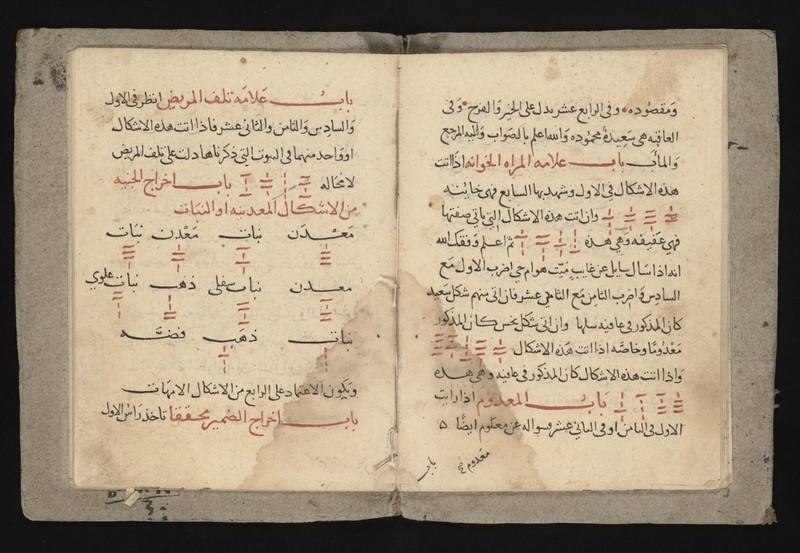 ومقصوده وفى الرابع عشر يدل على الخير والفرح وفى
العاقبه هى سعيدة محموده والله اعلم بالصواب واليه المرجع
والمآب باب علامه المراه الخوانه اذا اتت
هذه الاشكال فى الاول وشهد بها السابع فهى خاينه
وان اتت هذه الاشكال التى ياتى صفتها
فهى عفيفه وهى هذه ثم اعلم وفقك الله
انه اذا سال سايل عن غايب ميت هو ام حى اضرب الاول مع
السادس واضرب الثامن مع الثانى عشر فان اتى منهم شكل سعيد
كان المذكور فى عافيه سلما وان اتى شكل نحس كان المذكور
معدوما وخاصه اذا اتت هذه الاشكال
واذا اتت هذه الاشكال كان المذكور فى عافيه وهى هذه
باب المعدوم اذا رايت
الاول فى الثامن او فى الثانى عشر فسواله عن معدوم ايضا
معدوم
باب
باب علامة تلف المريض انظر فى الاول
والسادس والثامن والثانى عشر فاذا اتت هذه الاشكال
او واحد منها فى البيوت التى ذكرناها دلت على تلف المريض
لا محاله باب اخراج الخبيه
من الاشكال المعدنيه او النبات
معدن نبات معدن نبات
معدن نبات سفلى ذهب نبات علوي
نبات ذهب فضه
ويكون الاعتماد على الرابع من الاشكال الامهات
باب اخراج الضمير محققا تاخذ راس الاول